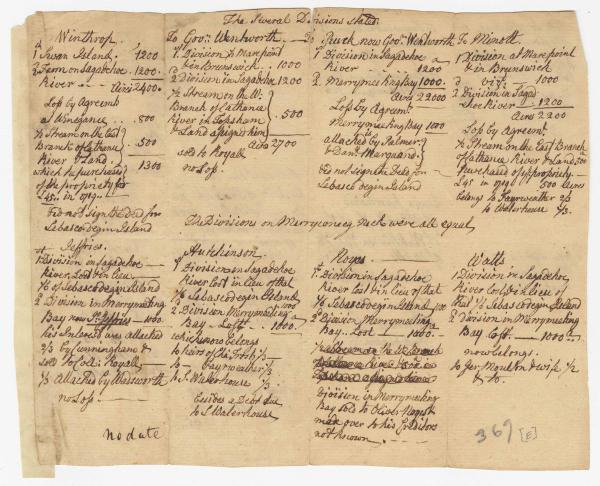 The Several Divisions Stated
Winthrop.
1st Swan Island. 1200
2d Farm on Sagadehoc 1200.
River Acres 2400.
Loss by Agreemt
at Winegance 500
½ Stream on the East
Branch of Cathance 500
River & Land 1300
which he purchased
of the propriety for
£45. in 1719.
Did not sign the Deed for
Sebascodegin Island
To Govr. Wentworth
1st Division at Marepoint
& in Brunswick 1000
2d Division in Sagadehoc 1200
½ Stream on the Wt.
Branch of Cathance
River in Topsham 500
& Land assign'd him
Acres 2700
sold to Royall
no Loss.
To Ruck now Govr. Wentworth
1st Division in Sagadehoc
River 1200
2d Merrymeeting Bay 1000.
Acres 2200
Loss by Agreemt
Merrymeeting Bay 1000
attached by Palmer
& Danl. Marquand.
did not sign the Deed for
Sebascodegin Island
To Minott
1st Division at Marepoint
& in Brunswick 1000
2d Division in Sagad
ehoc River 1200
Acres 2200
Loss by Agreemt
½ Stream on the East Branch
of Cathance River & Land 500
Purchased of ye propriety
£45 in 1719 500 Acres
belongs to Fayrweather 2/3
to Waterhouse 1/3.
The Divisions on Merryconeeg Neck were all equal
Jeffries.
1st Division in Sagadehoc
River, Lost in lieu
1/6 of Sebascodegin Island
2d Division in Merrymeeting
Bay now Dr. Jeffries 1000
his Interest was attached
2/3 by Cunningham &
sold to Coll: Royall
1/3 Attached by Wadsworth
no Loss.
no date
Hutchinson
1st Division on Sagadehoc
River Lost in lieu of that
1/6 Sebascodegin Island 1000
2d Division Merrymeeting
Bay. Lost 1000.
which is now belongs
to heirs of
to Fayrweather 1/3
to S. Waterhouse 1/3.
besides a Debt due
to S Waterhouse
Noyes
1st Division in Sagadehoc
River Lost in lieu of that
1/6 Sebascodegin Island 1000
2d Division Merrymeeting
Bay. Lost 1000
Division in Merrymeeting
Bay sold to Oliver Noyes
made over to his Creditors
not known.
Watts
1st Division in Sagadehoc
River Lost in lieu of
that 1/6 Sebascodegin Island
2d Division in Merrymeeting
Bay Lost 1000
now belongs.
to Jer Moulton & wife ½
& to
367 [E]